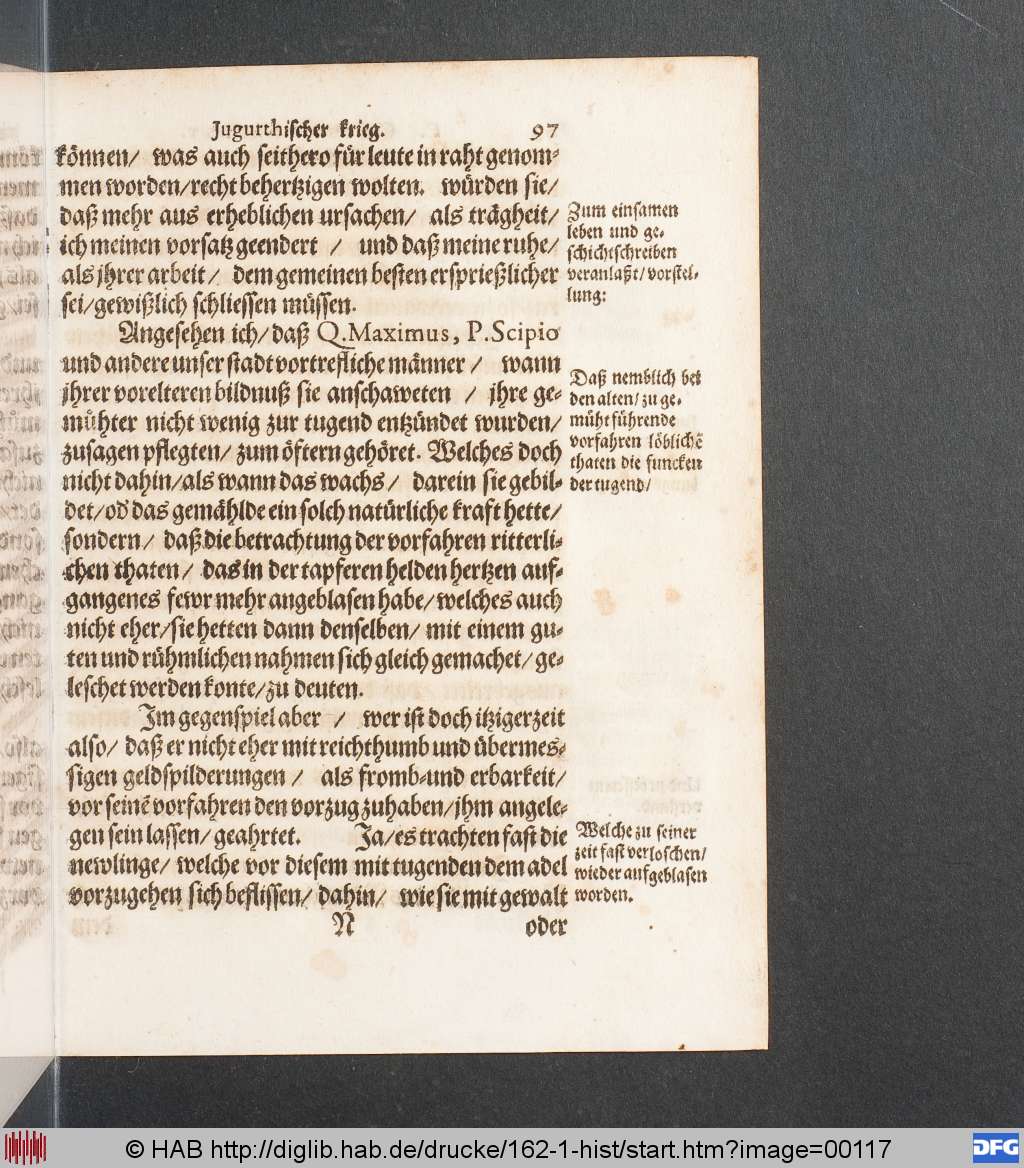 Jugurthischer krieg. 97
können/ was auch seithero für leute in raht genom-
men worden/recht behertzigen wolten. würden sie/
daß mehr aus erheblichen ursachen/ als trägheit/
ich meinen vorsatz geendert / und daß meine ruhe/
als jhrer arbeit/ dem gemeinen besten ersprießlicher
sei/gewißlich schliessen müssen.
Angesehen ich/daß Q.Maximus, P.Scipio
und andere unser stadt vortrefliche männer / wann
jhrer vorelteren bildnuß sie anschaweten / jhre ge-
mühter nicht wenig zur tugend entzündet wurden/
zusagen pflegten/ zum öftern gehöret. Welches doch
nicht dahin/als wann das wachs/ darein sie gebil-
det/od das gemählde ein solch natürliche kraft hette/
sondern/ daß die betrachtung der vorfahren ritterli-
chen thaten/ das in der tapferen helden hertzen auf-
gangenes fewr mehr angeblasen habe/welches auch
nicht eher/sie hetten dann denselben/ mit einem gu-
ten und rühmlichen nahmen sich gleich gemachet/ge-
leschet werden konte/zu deuten.
Im gegenspiel aber / wer ist doch itziger zeit
also/ daß er nicht eher mit reichthumb und übermes-
sigen geldspilderungen / als fromb-und erbarkeit/
vor seinē vorfahren den vorzug zuhaben/jhm angele-
gen sein lassen/geahrtet. Ja/es trachten fast die
newlinge/ welche vor diesem mit tugenden dem adel
vorzugehen sich beflissen/dahin/ wie sie mit gewalt
N oder
Zum einsamen
leben und ge-
schichtschreiben
veranlaßt/vorstel-
lung:
Daß nemblich bei
den alten/zu ge-
müht führende
vorfahren löblichē
thaten die funcken
der tugend/
Welche zu seiner
zeit fast verloschen/
wieder aufgeblasen
worden.
© HAB http://diglib.hab.de/drucke/162-1-hist/start.htm?image=00117
DFG